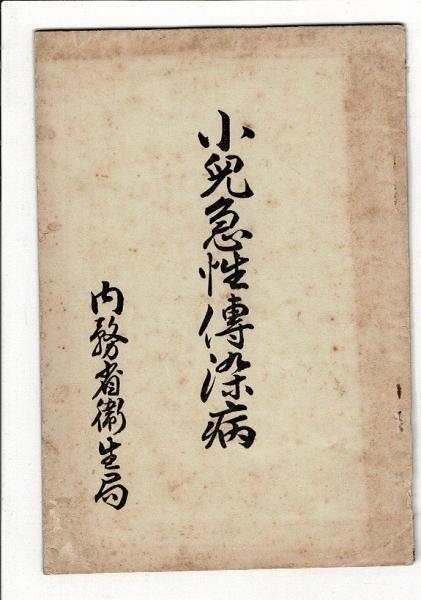 小兒急性傳染病
内務省衞生局